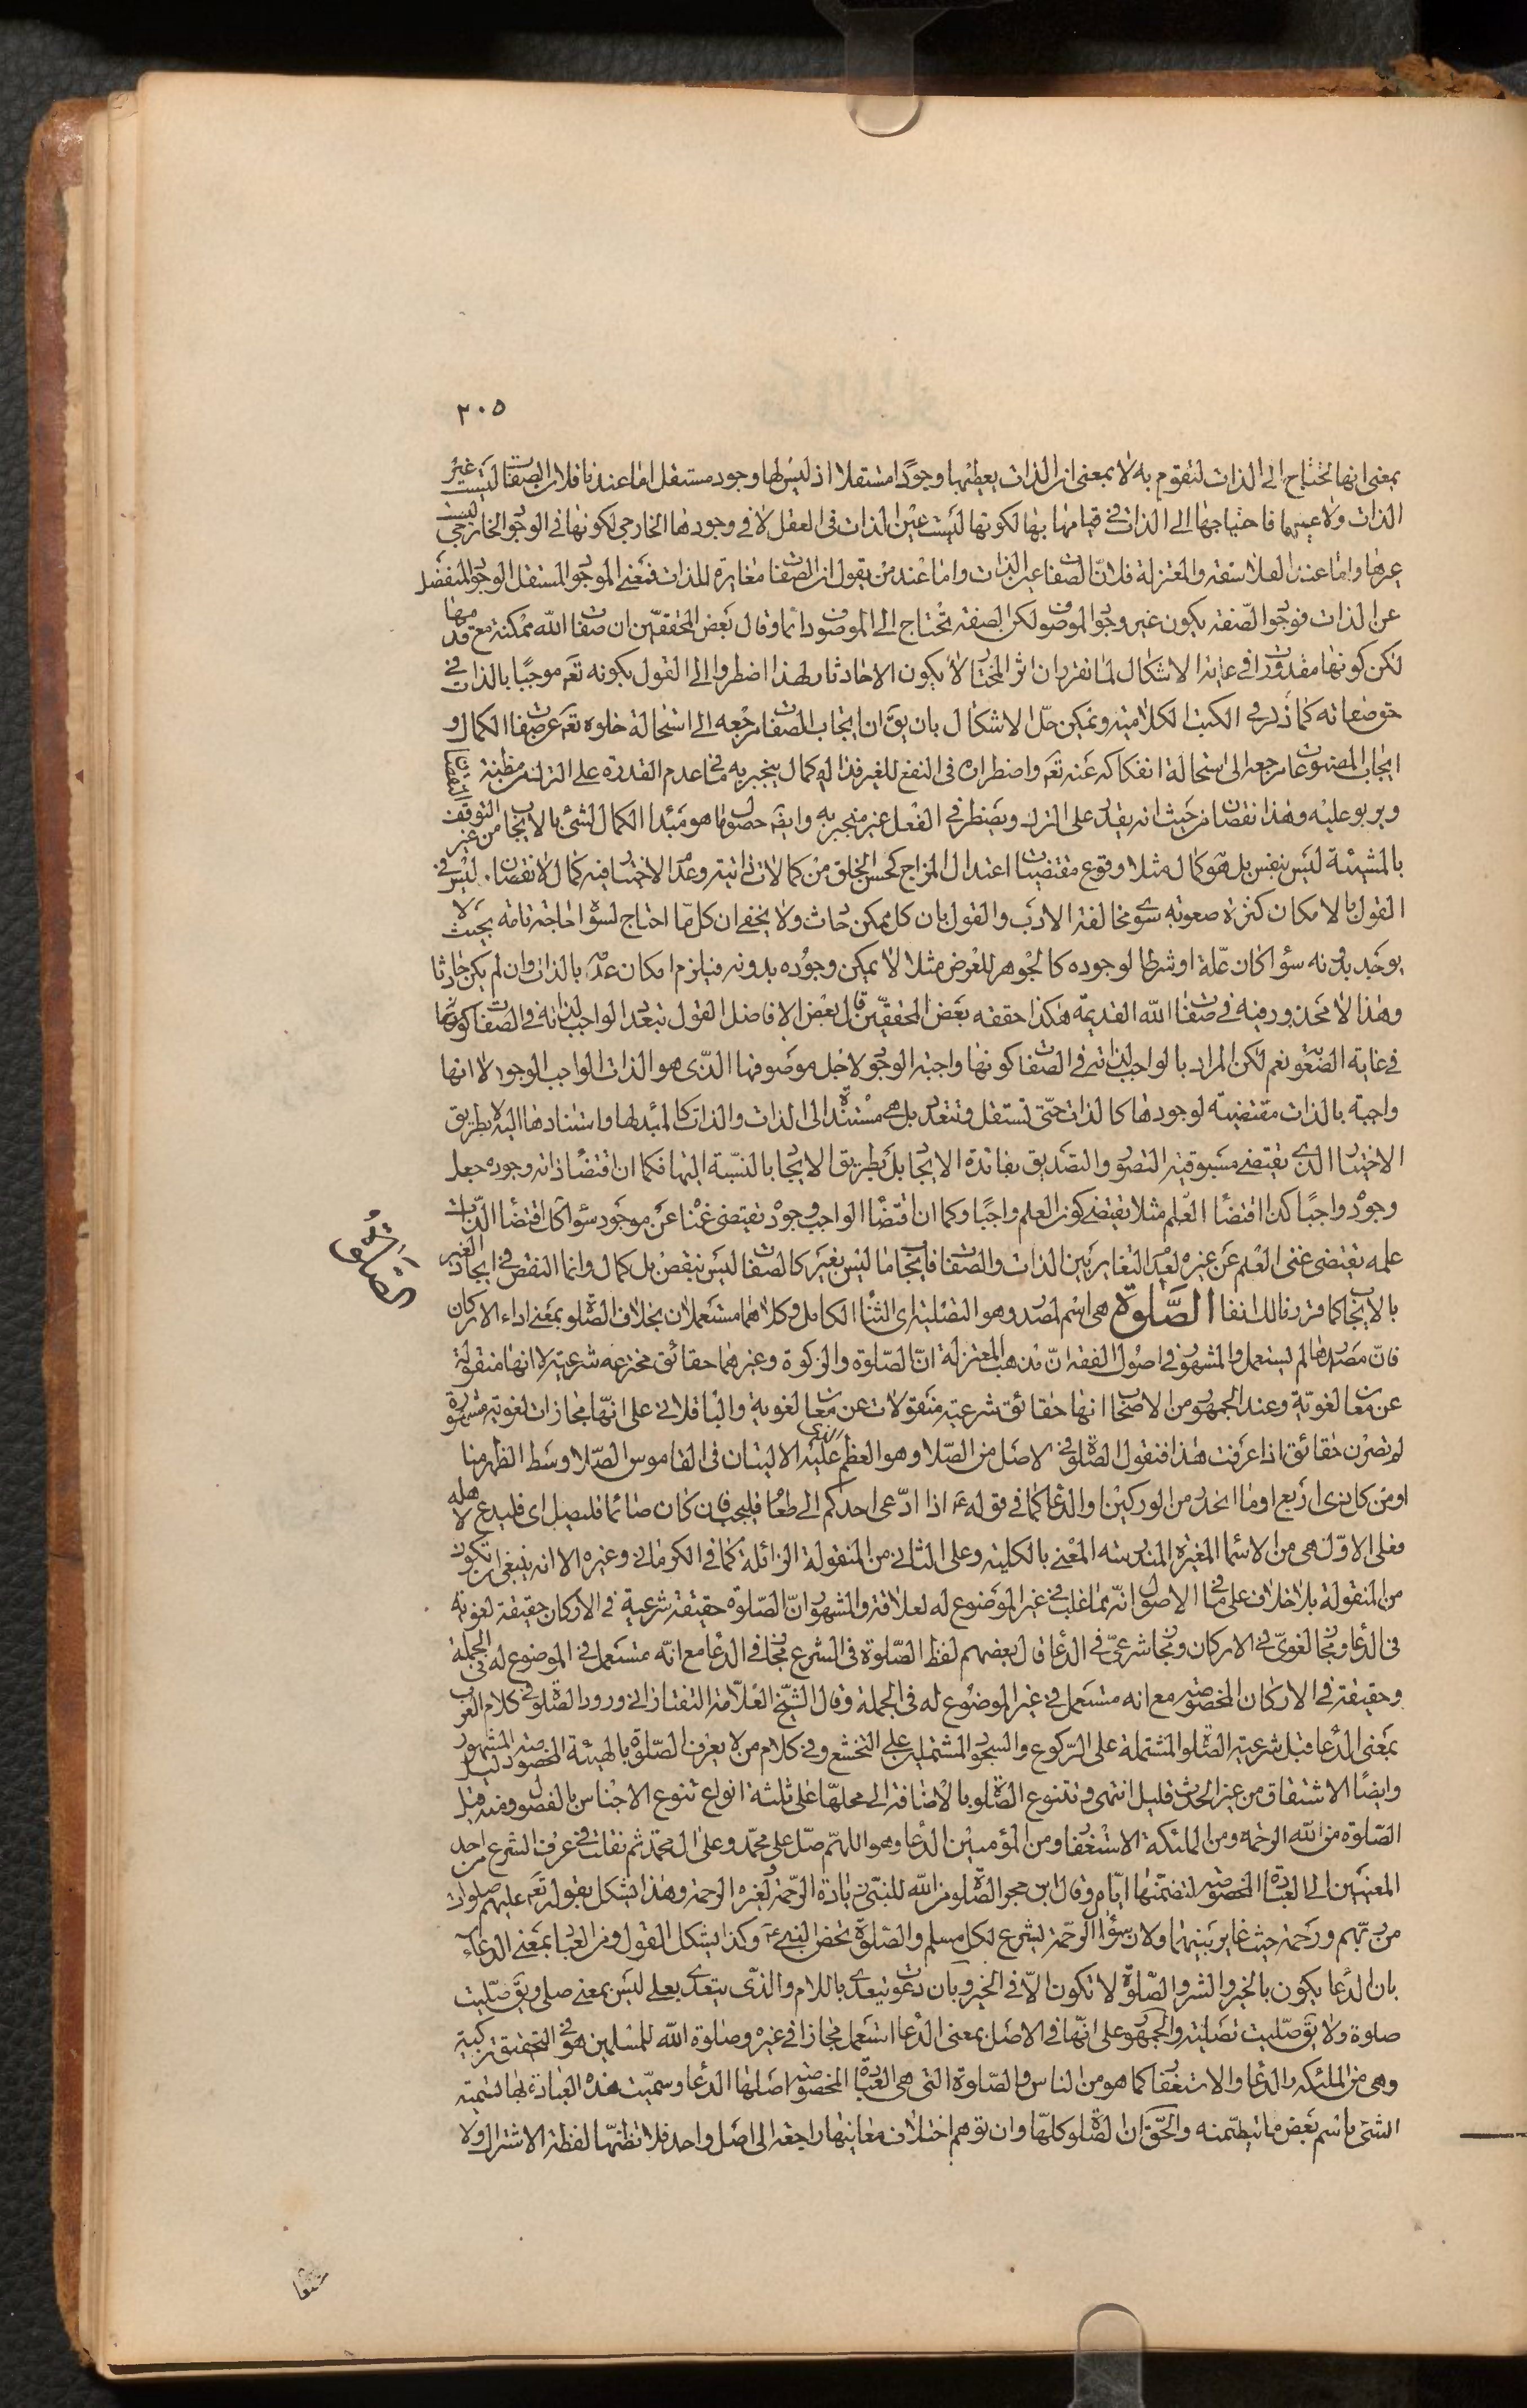 ٢٠٥
بمعنى انها تحتاج الى الذات لتقوم به لا بمعنى ان الذات يعطيها وجودًا مستقلا اذ ليس لها وجود مستقل اما عندنا فلان الصفات ليست غير
الذات ولا عينها فاحتياجها الى الذات في قيامها بها لكونها ليست عين الذات في العقل لا في وجودها الخارجي لكونها في الوجود الخارجي ليست
غيرها واما عند الفلاسفة والمعتزلة فلان الصفات عين الذات واما عند من يقول ان الصفات مغايرة للذات فمعنى الموجود المستقل الوجود المنفصل
عن الذات فوجود الصفة يكون غير وجود الموصوف لكن الصفة تحتاج الى الموصوف دائما وقال بعض المحققين ان صفات الله ممكنة مع قدمها
لكن كونها مقدورات في غاية الاشكال لما تقرر ان اثر المختار لا يكون الا حادثا ولهذا اضطروا الى القول بكونه تعم موجبًا بالذات في
حق صفاته كما ذكر في الكتب الكلامية ويمكن حلّ الاشكال بان يقّ ان ايجاب الصفات مرجعه الى استحالة خلوه تعم عن صفات الكمال و
ايجاب المصنوعات مرجعه الى استحالة انفكاكه عنه تعم واضطراره في النفع للغير فذا له كمال ينجبر به ما في عدم القدرة على الترك مظنة النقصان
ويربو عليه وهذا نقصان من حيث انه يقدر على الترك ويضطر في الفعل غير منجبر به وايضَ حصول ما هو مبدا الكمال لشئ بالايجاب من غير التوقف
بالمشيئة ليس بنقص بل هو كمال مثلا وقوع مقتضيات اعتدال المزاج كحسن الخلق من كمالات ذاتية وعدم الاختيار فيه كمال لا نقصان. ليس في
القول بالامكان كثرة صعوبة سوى مخالفة الادب والقول بان كل ممكن حادث ولا يخفى ان كل ما احتاج لسواه احاجة تامة بحيث لا
يوجد بدونه سواء كان علة او شرطا لوجوده كالجوهر للعرض مثلا لا يمكن وجوده بدونه فيلزم امكان عدمه بالذات وان لم يكن حادثا
وهذا لا محذور فيه في صفات الله القديمة هكذا حققه بعض المحققين قال بعض الافاضل القول بتعدد الواجب لذاته في الصفات كونها
في غاية الصعوبة نعم لكن المراد بالواجب لذاته في الصفات كونها واجبة الوجود لاجل موصوفها الذى هو الذات الواجب الوجود لا انها
واجبة بالذات مقتضية لوجودها كالذات حتى تستقل وتتعدد بل هي مستندة الى الذات والذات كالمبدا لها واستنادها اليه لا بطريق
الاختيار الذى يقتضى مسبوقية التصور والتصديق بفائدة الايجاد بل بطريق الايجاب بالنسبة اليها فكما ان اقتضاء ذاته وجوده جعل
وجوده واجبًا كذا اقتضاء العلم مثلا يقتضى كون العلم واجبًا وكما ان اقتضاء الواجب وجوده يقتضى غناه عن موجود سواه كذا اقتضاء الذات
علمه يقتضى غنى العلم عن غيره لعدم التغاير بين الذات والصفات فايجاب ما ليس بغير كالصفات ليس بنقص بل كمال وانما النقص في ايجاد الغير
بالايجاب كما قرر فالك انفا الصَّلوة هي اسم لمصدر وهو التصلية اى الثناء الكامل وكلاهما مستعملان بخلاف الصلوة بمعنى اداء الاركان
الصَّلَوةُ
فان مصدرها لم يستعمل والمشهور في اصول الفقه انّ مذهب المعتزلة انّ الصّلوة والزكوة وغيرهما حقائق مخترعة شرعية لا انها منقولة
عن معان لغويّة وعند الجمهور من الاصحاب انها حقائق شرعية منقولات عن معان لغوية والباقلانى على انّها مجازات لغوية مشهورة
لم تصرن حقائق اذا عرفت هذا فنقول الصلوة في الاصل من الصّلا وهو العظم الذى عليه الاليتان في القاموس الصّلا وسط الظهر منا
او من كل ذى اربع او ما انحدر من الوركين او الدعاء كما في قوله عَ اذا ادّعى احدكم الى طعام فليجب فان كان صائما فليصل اى فليدع لاهله
فعلى الاوّل هي من الاسماء المغيرة المندرسة المعنى بالكلية وعلى الثانى من المنقولة الزائلة كما في الكرمانى وغيره الا انه ينبغى ان تكون
من المنقولة بلا خلاف على ما في الاصول انّه مما غلب في غير الموضوع له لعلاقة والمشهور انّ الصّلوة حقيقة شرعية في الاركان حقيقة لغوية
في الدعاء ومجاز لغوىّ في الاركان ومجاز شرعىّ في الدعاء قال بعضهم لفظ الصّلوة في الشرع مجاز في الدعاء مع انّه مستعمل في الموضوع له في الجملة
وحقيقة في الاركان المخصوصة مع انه مستعمل في غير الموضوع له في الجملة وقال الشيخ العلّامة التفتازانى ورود الصلوة في كلام العرب
بمعنى الدعاء قبل شرعية الصلوة المشتملة على الرّكوع والسجود المشتملين على التخشع وفي كلام من لا يعرف الصّلوة بالهيئة المخصوصة دليل المشهور
وايضًا الاشتقاق من غير الحدث قليل انتهى وتتنوع الصلوة بالاضافة الى محلها على ثلثة انواع تنوع الاجناس بالفصول ومنه قيل
الصّلوة من الله الرحمة ومن الملئكة الاستغفار ومن المؤمنين الدعاء وهو اللهمّ صلّ على محمّد وعلى ال محمّد ثم نقلت في عرف الشرع من احد
المعنيين الى العبادة المخصوصة لتضمنها ايّاه وقال ابن حجر الصلوة من الله للنبىّ زيادة الرّحمة ولغيره الرحمة وهذا يشكل بقوله تعَم عليهم صلوات
من ربّهم ورحمة حيث غاير بينهما ولان سؤال الرّحمة يشرع لكل مسلم والصلوة تخص النبىّ عَ وكذا يشكل القول ومن العباد بمعنى الدعاء
بان الدعاء يكون بالخير والشر والصّلوة لا تكون الّا في الخير وبان دعوت يتعدى باللام والذى يتعدى بعلى ليس بمعنى صلى ويقَ صلّيت
صلوة ولا يقَ صلّيت تصلية والجمهور على انّها في الاصل بمعنى الدعاء استعمل مجازا في غيره وصلوة الله للمسلمين هو في التحقيق تزكية
وهى من الملئكة الدعاء والاستغفار كما هو من الناس والصّلوة التى هي العبادة المخصوصة اصلها الدعاء وسمّيت هذه العبادة بها تسمية
الشئ باسم بعض ما يتضمنه والحق ان الصلوة كلها وان توهم اختلاف معانيها راجعة الى اصل واحد فلا تظنها لفظة الاشتراك ولا